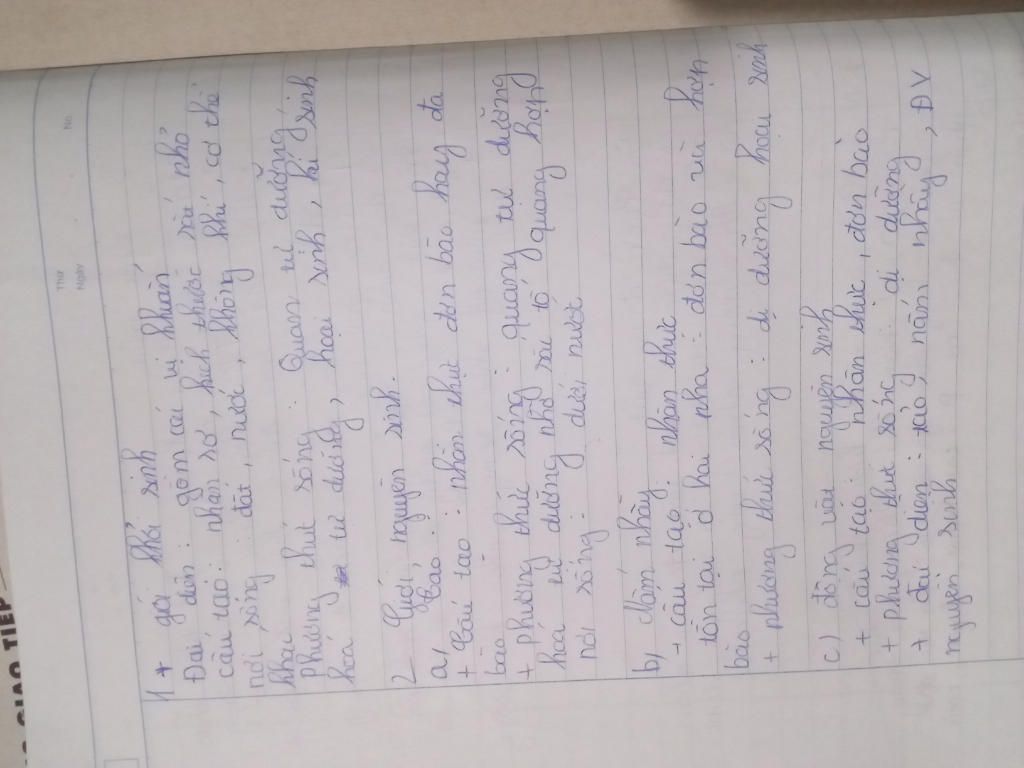 GIAO TIẾP
Thứ
Ngày
No.
1 + giới khởi sinh
Đại diện : gồm các vi khuẩn
cấu tạo : nhân sơ, kích thước rất nhỏ
nơi sống : đất, nước, không khí, cơ thể
khác
Phương thức sống : Quan tự dưỡng,
hoá tự dưỡng, hoại sinh, kí sinh
2 Giới nguyên sinh.
a, Tảo :
+ Cấu tạo : nhân thực đơn bào hay đa
bào
+ phương thức sống : quang tự dưỡng
hoá tự dưỡng nhờ sắc tố quang hợp
nơi sống : dưới nước
b, Nấm nhầy
+ cấu tạo : nhân thực
tồn tại ở hai pha : đơn bào và hợp
bào
+ phương thức sống : dị dưỡng hoại sinh
c) động vật nguyên sinh
+ cấu tạo : nhân thực, đơn bào
+ phương thức sống : dị dưỡng
+ đại diện : tảo, nấm nhầy, ĐV
nguyên sinh